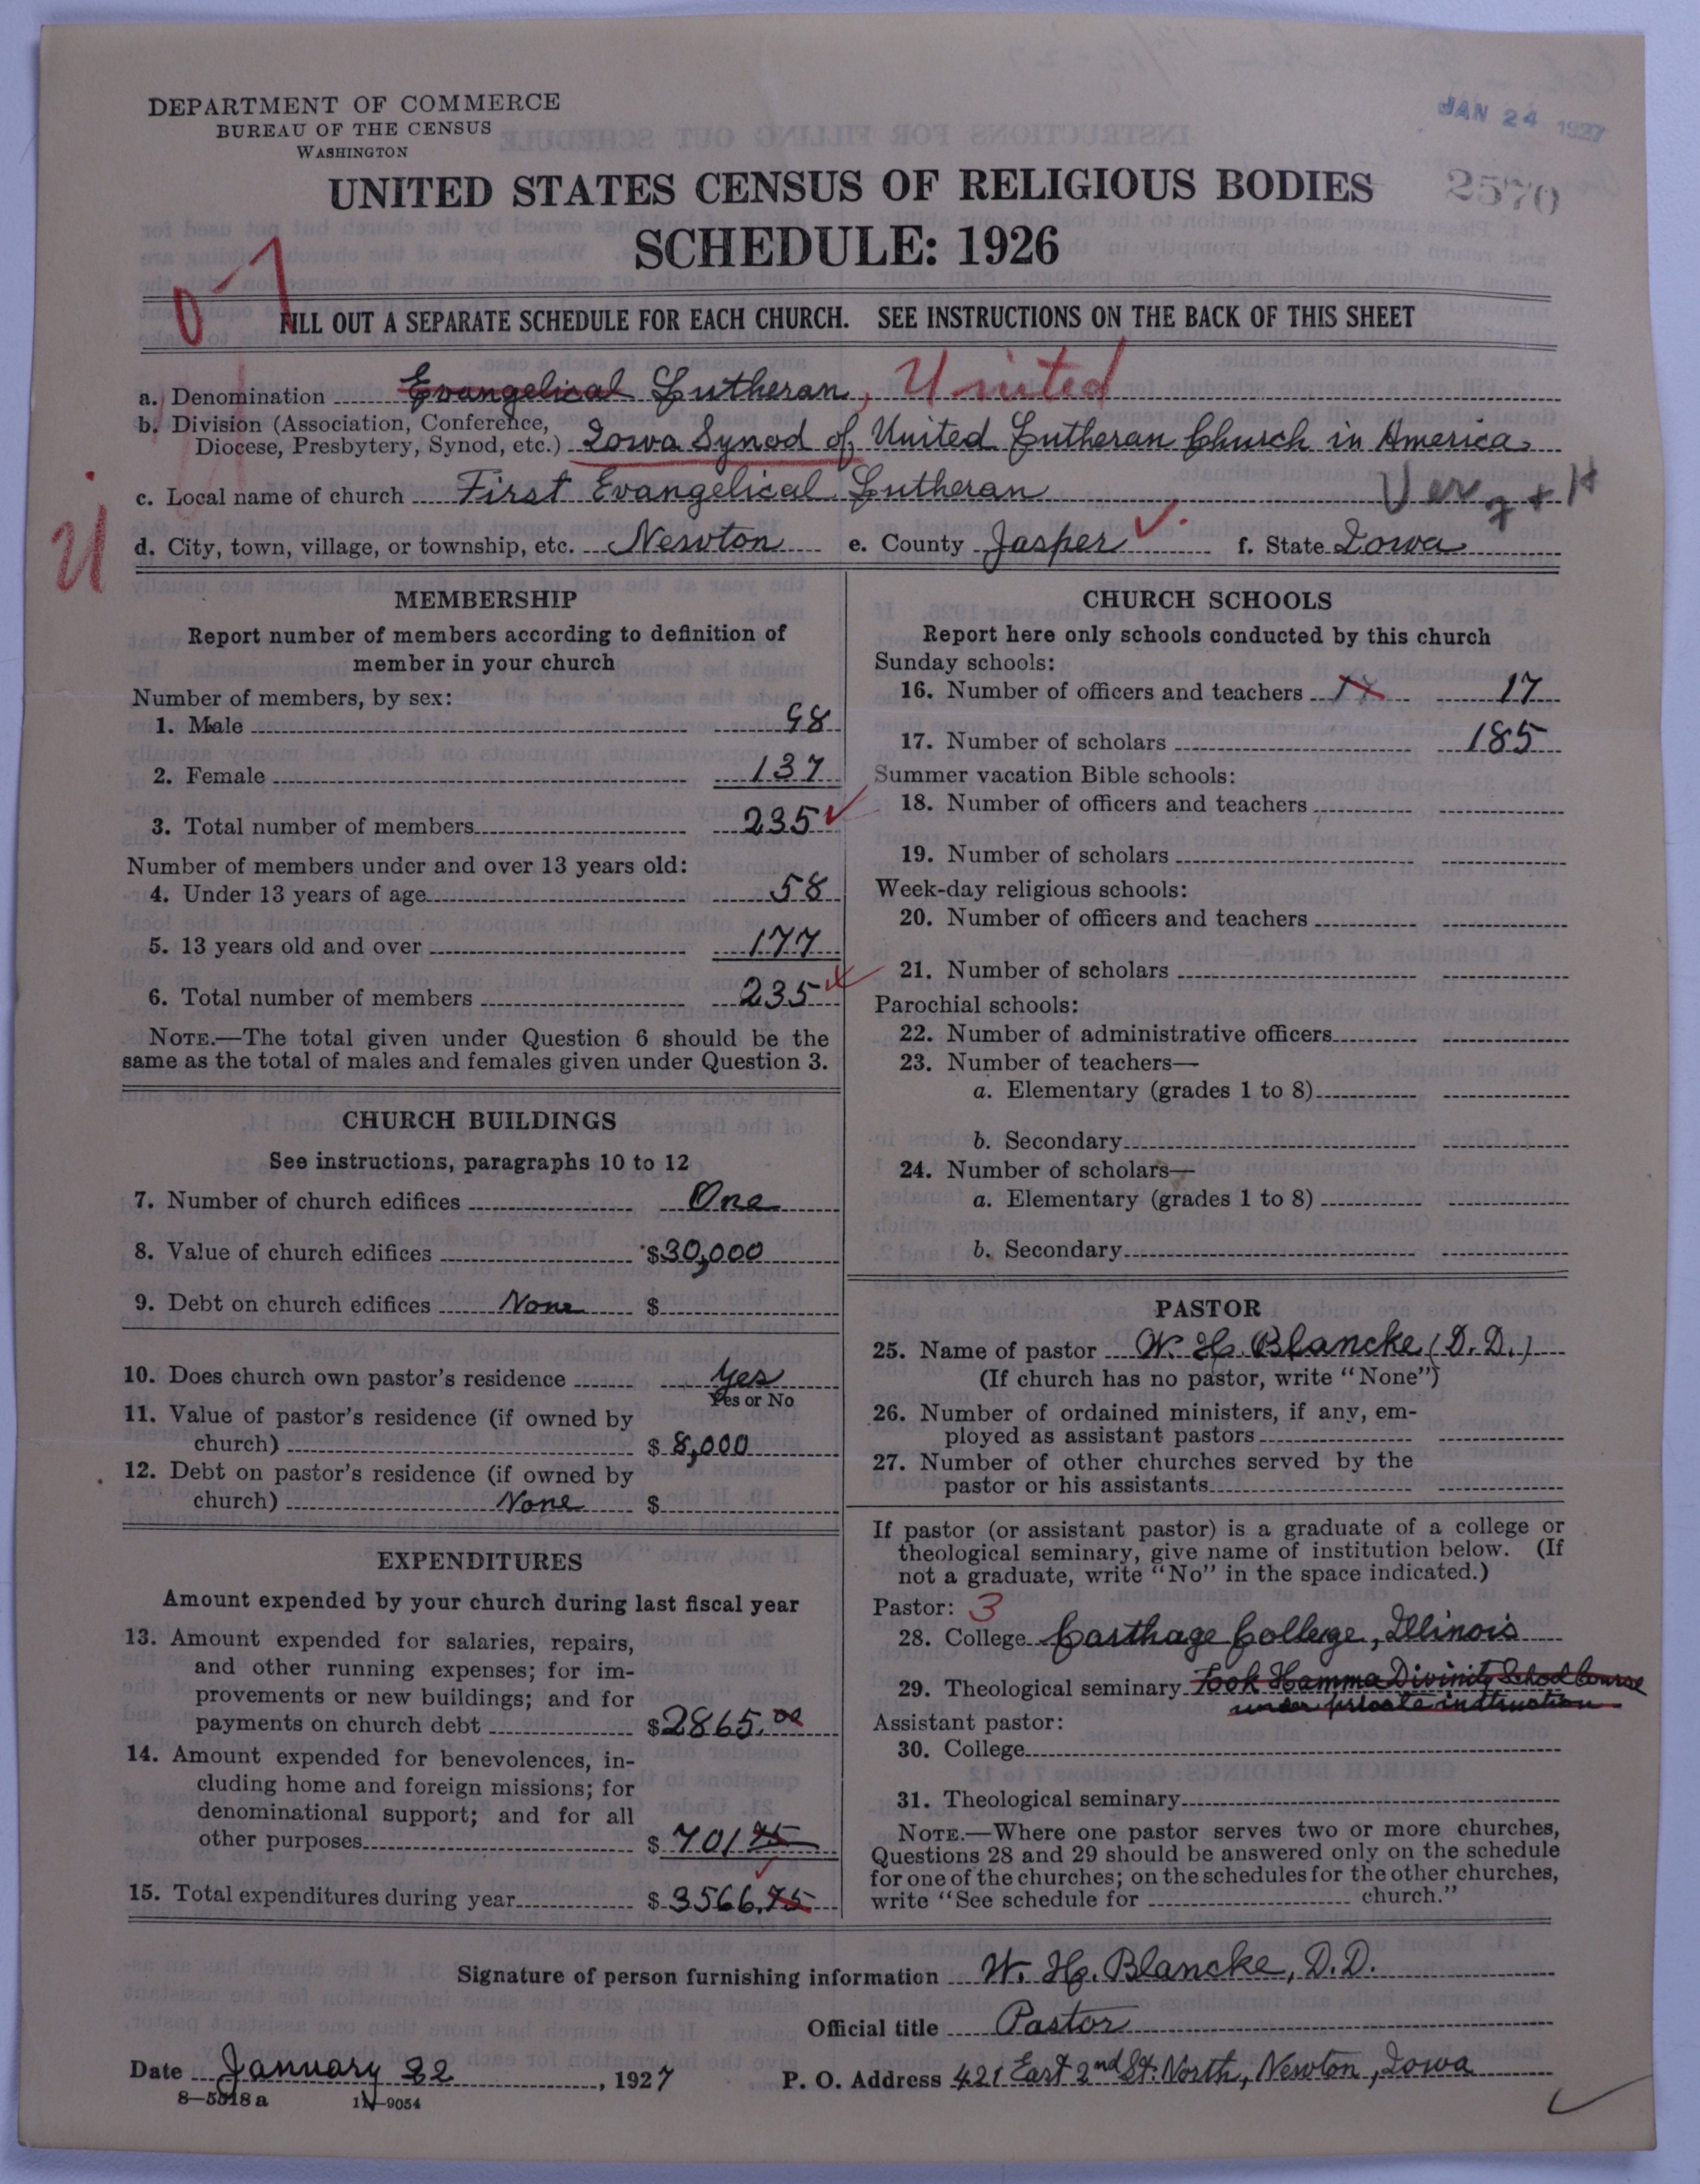 DEPARTMENT OF COMMERCE
BUREAU OF THE CENSUS
WASHINGTON
JAN 24 1927
UNITED STATES CENSUS OF RELIGIOUS BODIES
2570
SCHEDULE: 1926
FILL OUT A SEPARATE SCHEDULE FOR EACH CHURCH. SEE INSTRUCTIONS ON THE BACK OF THIS SHEET
a. Denomination Evangelical Lutheran, United
b. Division (Association, Conference,
Diocese, Presbytery, Synod, etc.) Iowa Synod of United Lutheran Church in America
c. Local name of church First Evangelical Lutheran
d. City, town, village, or township, etc. Newton e. County Jasper f. State Iowa
MEMBERSHIP
Report number of members according to definition of
member in your church
Number of members, by sex:
1. Male 98
2. Female 137
3. Total number of members 235
Number of members under and over 13 years old:
4. Under 13 years of age 58
5. 13 years old and over 177
6. Total number of members 235
NOTE.—The total given under Question 6 should be the
same as the total of males and females given under Question 3.
CHURCH BUILDINGS
See instructions, paragraphs 10 to 12
7. Number of church edifices One
8. Value of church edifices $30,000
9. Debt on church edifices None $
10. Does church own pastor's residence Yes
Yes or No
11. Value of pastor's residence (if owned by
church) $ 8,000
12. Debt on pastor's residence (if owned by
church) None $
EXPENDITURES
Amount expended by your church during last fiscal year
13. Amount expended for salaries, repairs,
and other running expenses; for im-
provements or new buildings; and for
payments on church debt $2865.00
14. Amount expended for benevolences, in-
cluding home and foreign missions; for
denominational support; and for all
other purposes $ 701 75
15. Total expenditures during year $ 3566.75
CHURCH SCHOOLS
Report here only schools conducted by this church
Sunday schools:
16. Number of officers and teachers 17 17
17. Number of scholars 185
Summer vacation Bible schools:
18. Number of officers and teachers
19. Number of scholars
Week-day religious schools:
20. Number of officers and teachers
21. Number of scholars
Parochial schools:
22. Number of administrative officers
23. Number of teachers—
a. Elementary (grades 1 to 8)
b. Secondary
24. Number of scholars—
a. Elementary (grades 1 to 8)
b. Secondary
PASTOR
25. Name of pastor W. H. Blancke (D.D.)
(If church has no pastor, write "None")
26. Number of ordained ministers, if any, em-
ployed as assistant pastors
27. Number of other churches served by the
pastor or his assistants
If pastor (or assistant pastor) is a graduate of a college or
theological seminary, give name of institution below. (If
not a graduate, write "No" in the space indicated.)
Pastor: 3
28. College Carthage College, Illinois
29. Theological seminary Took Hamma Divinity School Course
under private instruction
Assistant pastor:
30. College
31. Theological seminary
NOTE.—Where one pastor serves two or more churches,
Questions 28 and 29 should be answered only on the schedule
for one of the churches; on the schedules for the other churches,
write "See schedule for church."
Signature of person furnishing information W. H. Blancke, D.D.
Official title Pastor
Date January 22, 1927 P. O. Address 421 East 2nd St. North, Newton, Iowa
8—5018 a 11—9054